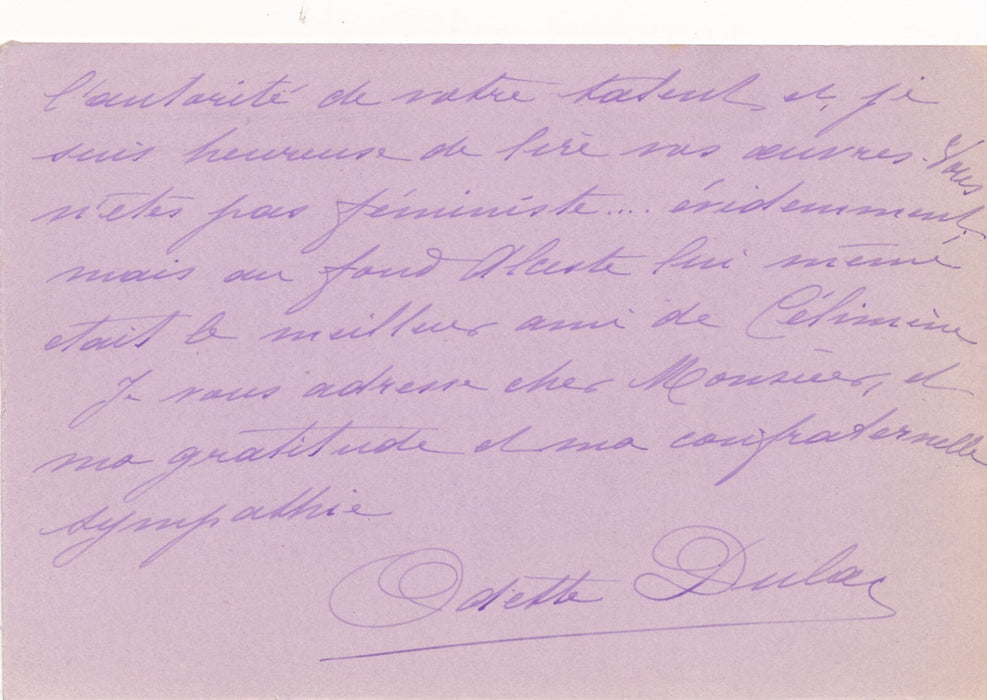 l'autorité de votre talent, et, je
suis heureuse de lire vos œuvres. Vous
n'êtes pas féministe.... évidemment,
mais au fond Alceste lui même
était le meilleur ami de Célimène
Je vous adresse cher Monsieur, et
ma gratitude et ma confraternelle
sympathie
Odette Dulac